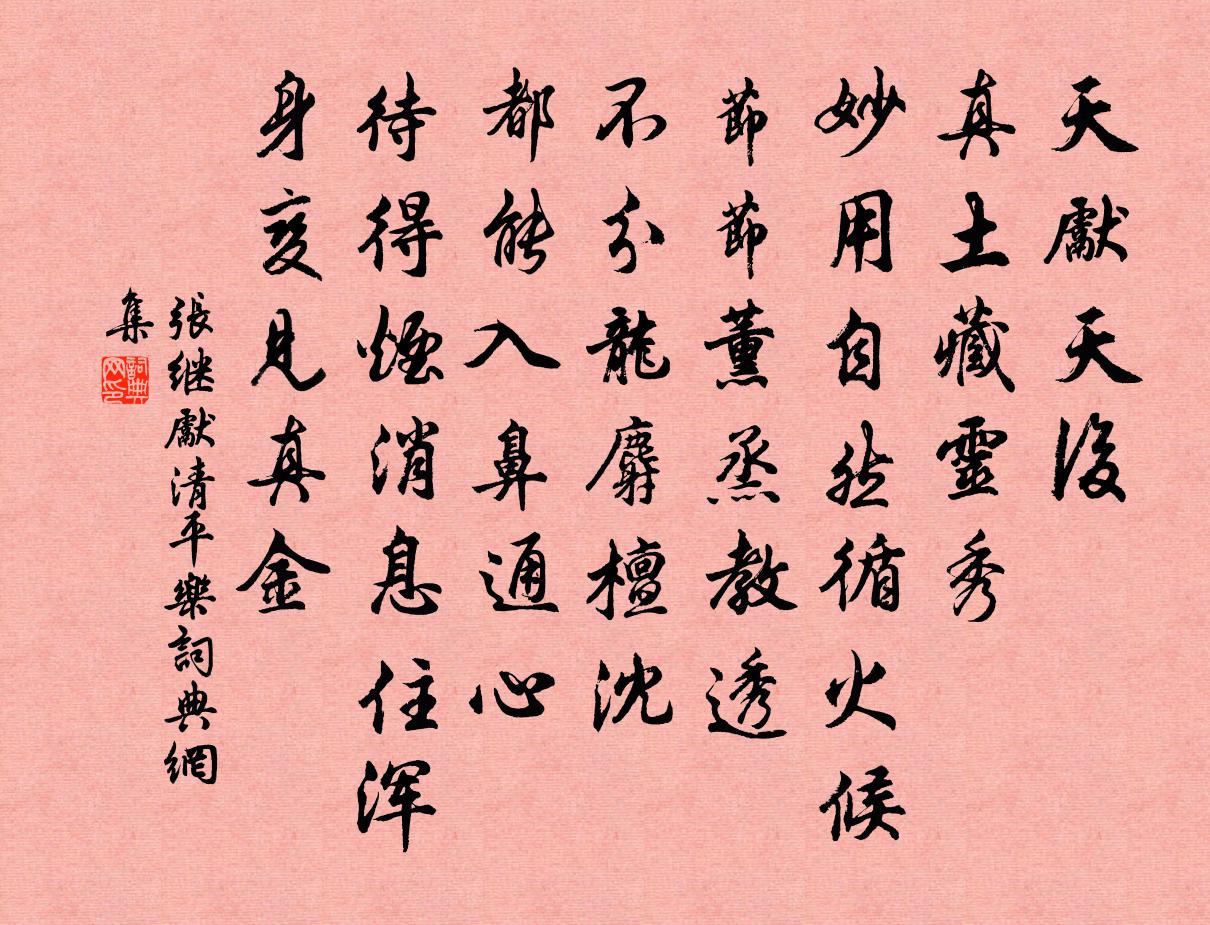 天獻天後
真土藏靈秀
妙用自然循火候
節節薰蒸教透
不分龍麝檀沈
都能入鼻通心
待得煙消息住浑
身变见真金
張继獻清平樂詞典網
集
詞典网印